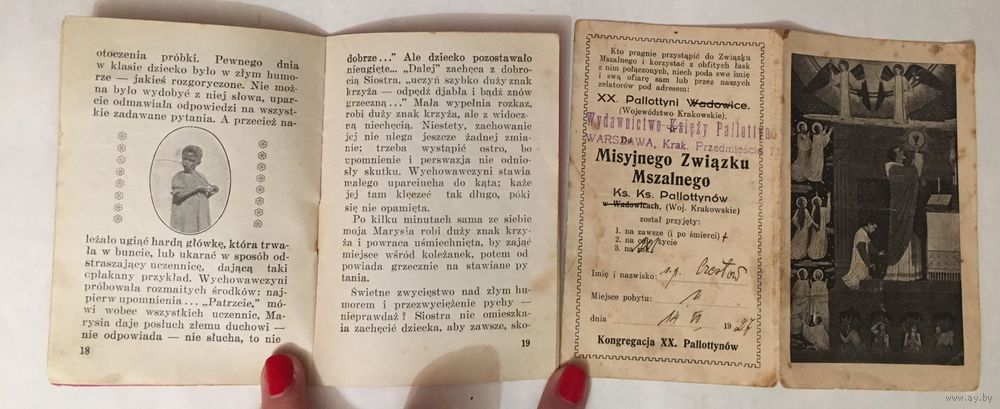 otoczenia próbki. Pewnego dnia
w klasie dziecko było w złym humo-
rze — jakieś rozgoryczone. Nie moż-
na było wydobyć z niej słowa, upar-
cie odmawiała odpowiedzi na wszyst-
kie zadawane pytania. A przecież na-
leżało ugiąć hardą główkę, która trwa-
ła w buncie, lub ukarać w sposób od-
straszający uczennice, dającą taki
opłakany przykład. Wychowawczyni
próbowała rozmaitych środków: naj-
pierw upomnienia... „Patrzcie," mó-
wi wobec wszystkich uczennic, Ma-
rysia daje posłuch złemu duchowi —
nie odpowiada — nie słucha, to nie
18
dobrze..." Ale dziecko pozostawało
nieugięte... „Dalej" zachęca z dobro-
cią Siostra, „uczyń szybko duży znak
krzyża — odpędź djabła i bądź znów
grzeczną..." Mała wypełnia rozkaz,
robi duży znak krzyża, ale z widocz-
ną niechęcią. Niestety, zachowanie
jej nie ulega jeszcze żadnej zmia-
nie; trzeba wystąpić ostro, bo
upomnienie i perswazja nie odnio-
sły skutku. Wychowawczyni stawia
małego uparciucha do kąta; każe
jej tam klęczeć tak długo, póki
się nie opamięta.
Po kilku minutach sama ze siebie
moja Marysia robi duży znak krzy-
ża i powraca uśmiechnięta, by zająć
miejsce wśród koleżanek, potem od
powiada grzecznie na stawiane py
tania.
Świetne zwycięstwo nad złym hu-
morem i przezwyciężenie pychy —
nieprawdaż? Siostra nie omieszka-
ła zachęcić dziecka, aby zawsze, sko-
19
Kto pragnie przystąpić do Związku
Mszalnego i korzystać z obfitych łask
z nim połączonych, niech poda swe imię
i swą ofiarę sam lub przez naszych
zelatorów pod adresem:
XX. Pallottyni Wadowice.
(Województwo Krakowskie).
Wydawnictwo Księży Pallotty
WARSZAWA, Krak. Przedmieście 71
Do
Misyjnego Związku
Mszalnego
Ks. Ks. Pallottynów
w Wadowicach, (Woj. Krakowskie)
został przyjęty:
1. na zawsze (i po śmierci) +
2. na całe życie
3. na rok
Imię i nazwisko: ś.p.
Miejsce pobytu:
dnia 14 VI 1927
Kongregacja XX. Pallottynów
www.ay.by